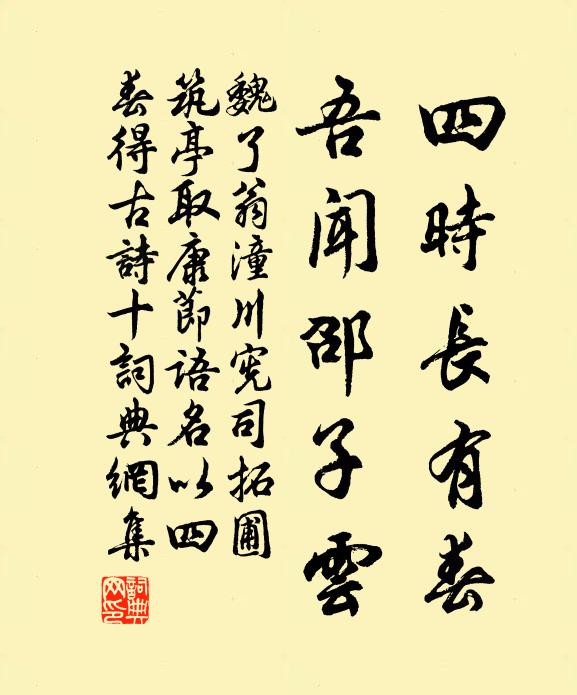 四時長有春
吾聞邵子雲
魏了翁潼川宪司拓圃
筑亭取康節语名以四
春得古詩十詞典網集
詞典网印